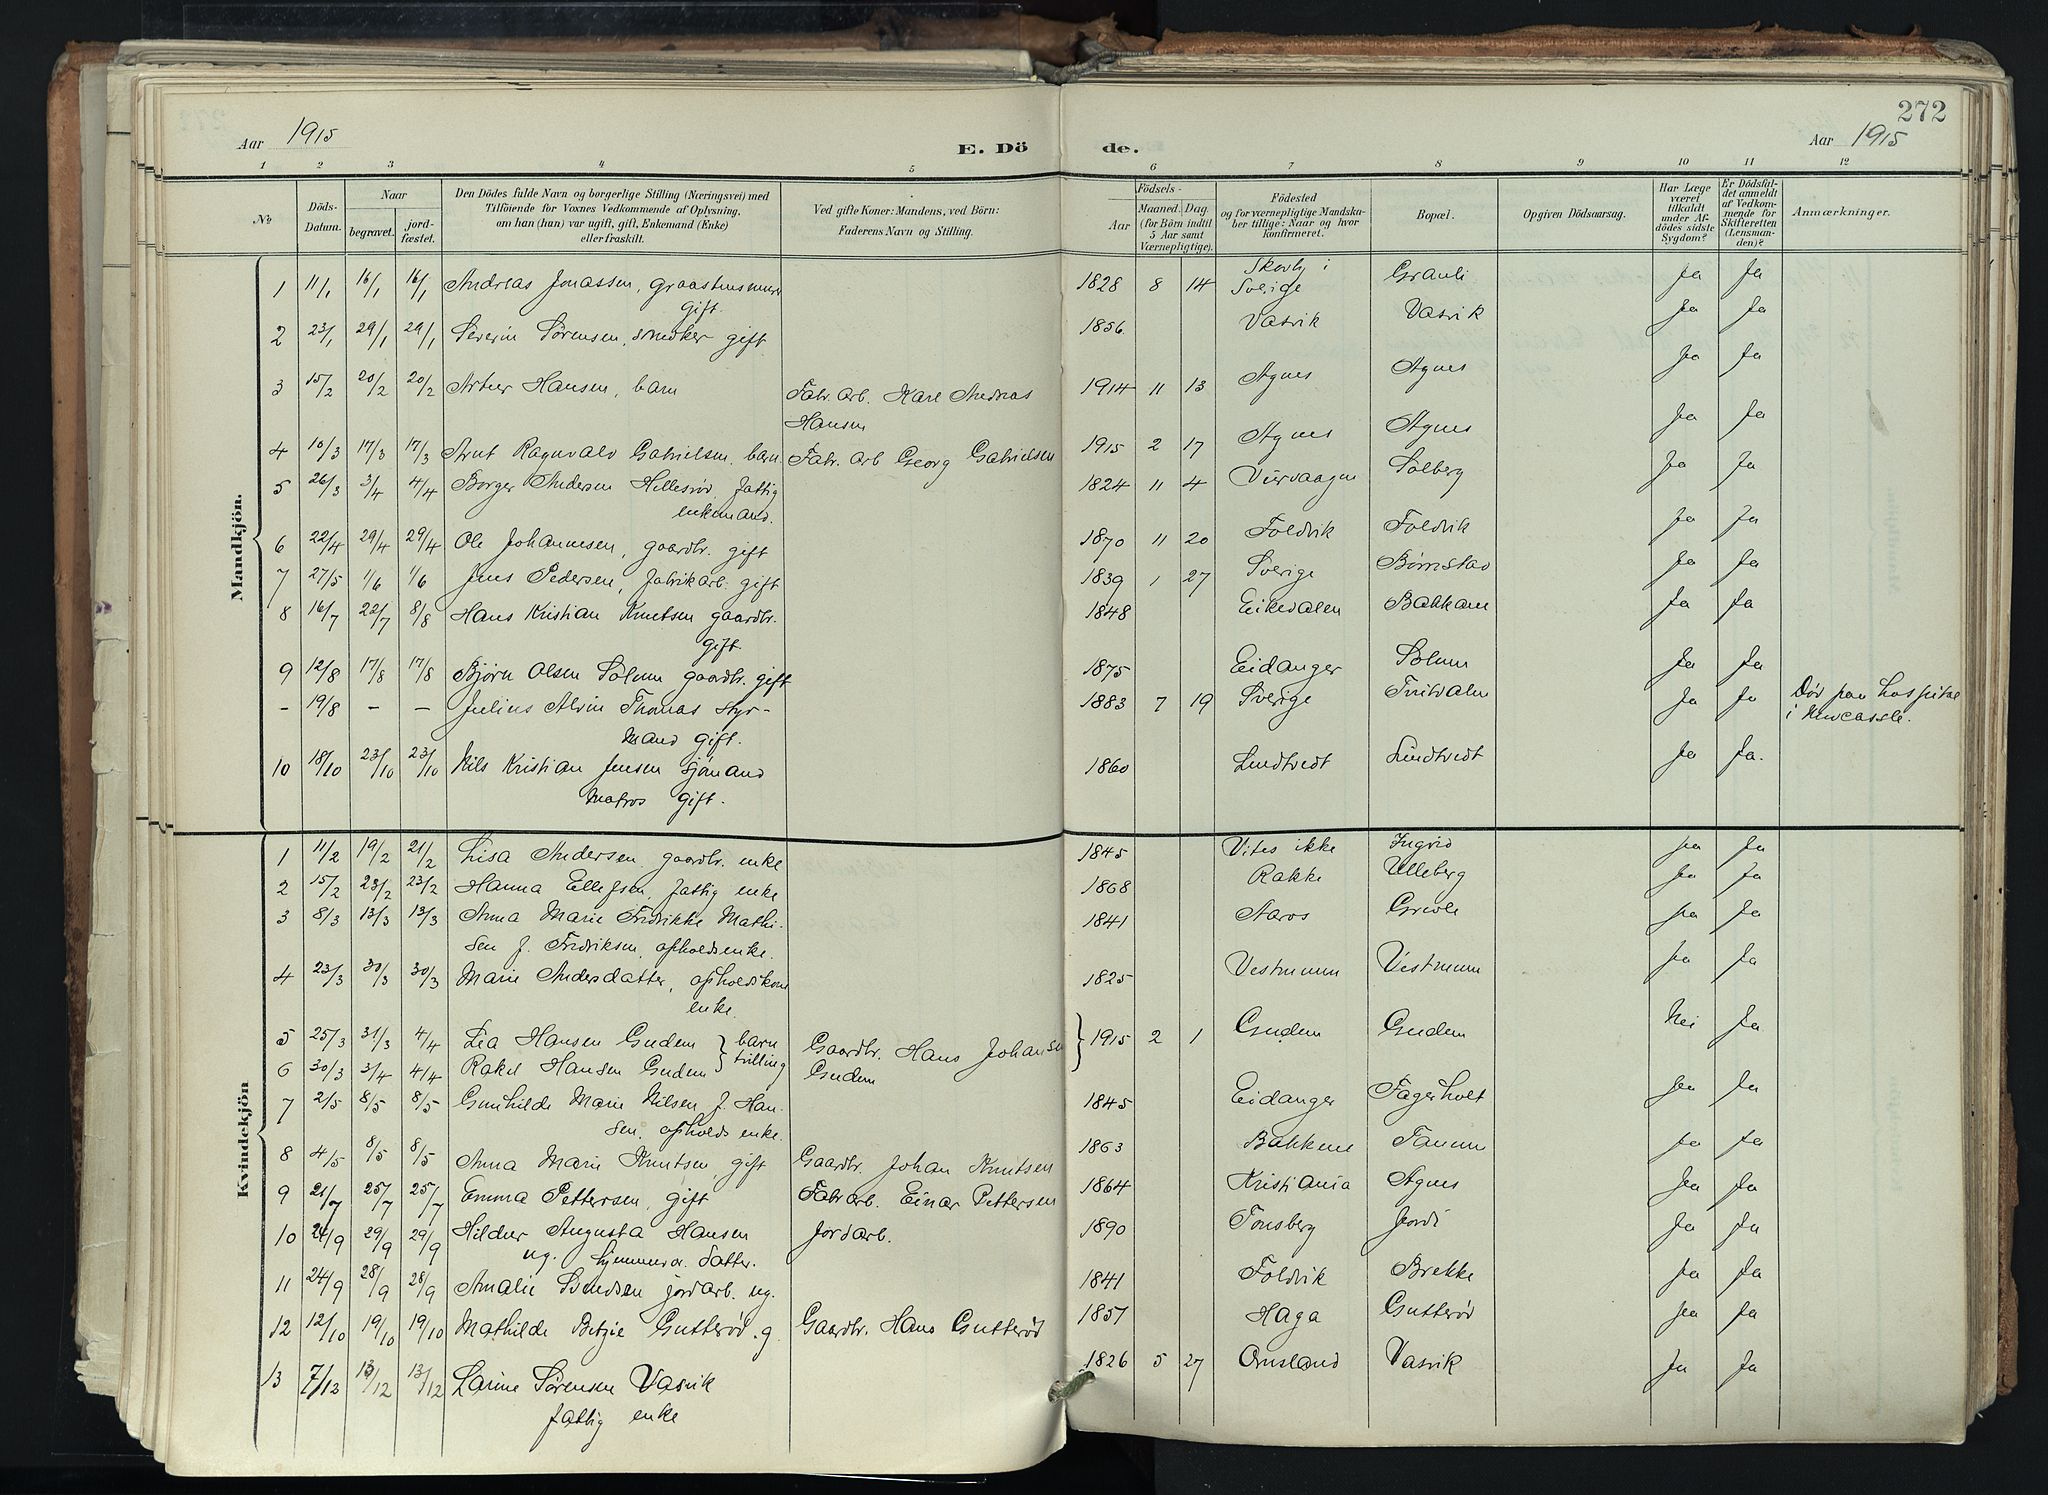 272
Aar 1915
E. Dö
de.
Aar 1915
1 2 3 4 5 6 7 8 9 10 11 12
No
Döds-Datum.
Naar
begravet.
jord-fæstet.
Den Dödes fulde Navn og borgerlige Stilling (Næringsvei) med
Tilföiende for Voxnes Vedkommende af Oplysning,
om han (hun) var ugift, gift, Enkemand (Enke)
eller fraskilt.
Ved gifte Koner: Mandens, ved Börn:
Faderens Navn og Stilling.
Födsels-
Aar
Maaned. Dag
(for Börn indtil
5 Aar samt
Værnepligtige).
Födested
og for værnepligtige Mandska-
ber tillige: Naar og hvor
konfirmeret.
Bopæl.
Opgiven Dödsaarsag.
Har Læge
været
tilkaldt
under Af-
dödes sidste
Sygdom?
Er Dödsfal-
det anmeldt
af Vedkom-
mende for
Skifteretten
(Lensman-
den)?
Anmærkninger.
Mandkjön.
1 11/1 16/1 16/1 Andreas Jonassen, graastensmurer 1828 8 14 Skovby i Sverige Grauli Ja Ja
gift.
2 23/1 29/1 29/1 Severin Sørensen, snedker gift 1856 Vasvik Vasvik Ja Ja
3 15/2 20/2 20/2 Artur Hansen, barn Fabr. arb. Karl Andreas 1914 11 13 Agnes Agnes Ja Ja
Hansen
4 10/3 17/3 17/3 Arnt Ragnvald Gabrielsen, barn Fabr. arb Georg Gabrielsen 1915 2 17 Agnes Agnes Ja Ja
5 26/3 3/4 4/4 Borger Andersen Hillesrød, fattig 1824 11 4 Solberg Ja Ja
enkemand.
6 22/4 29/4 29/4 Ole Johannesen, gaardbr. gift 1870 11 20 Foldvik Foldvik Ja Ja
7 27/5 1/6 1/6 Jens Pedersen, fabrikarb. gift 1839 1 27 Sverige Børnstad Ja Ja
8 16/7 22/7 8/8 Hans Kristian Knutsen gaardbr. 1848 Eikedalen Bakkane Ja Ja
gift.
9 12/8 17/8 17/8 Bjørn Olsen Solum gaardbr. gift 1875 Eidanger Solum Ja Ja
- 19/8 - - Julius Alvin Thomas Styr- 1883 7 19 Sverige Ja Ja Død paa hospital
mand gift. i Newcastle.
10 18/10 23/10 23/10 Nils Kristian Jensen Sjømand 1860 Lundtvedt Lundtvedt Ja Ja.
Matros gift.
Kvindekjön
1 11/2 19/2 21/2 Lisa Andersen, gaardbr. enke 1845 Vites ikke Ingrid Ja Ja
2 15/2 23/2 23/2 Hanna Ellefsen, fattig enke 1868 Rakke Ulleberg Ja Ja
3 8/3 13/3 13/3 Anna Marie Fredrikke Mathi- 1841 Aaros Ja Ja
sen f. Fredriksen, opholdsenke.
4 23/3 30/3 30/3 Marie Andersdatter, opholdskone 1825 Vestrumm Vestrumm Ja Ja
enke.
5 25/3 31/3 4/4 Lea Hansen Gudem } barn Gaardbr. Hans Johansen } 1915 2 1 Gudem Gudem Nei Ja
6 30/3 3/4 4/4 Rakel Hansen Gudem } tvilling Gudem
7 2/5 8/5 8/5 Gunhilde Marie Nilsen f. Han- 1845 Eidanger Fagerholt Ja Ja
sen. opholds enke.
8 4/5 8/5 8/5 Anna Marie Knutsen, gift Gaardbr. Johan Knutsen 1863 Bakkene Tanum Ja Ja
9 21/7 25/7 25/7 Emma Pettersen, gift Fabr arb. Einar Pettersen 1864 Kristiania Agnes Ja Ja
10 24/9 29/9 29/9 Hildur Augusta Hansen Jordarb. 1890 Tønsberg Jordi Ja Ja
ug. hjemmev. datter.
11 24/9 28/9 28/9 Amalie Svendsen jordarb. ug. 1841 Foldvik Brekke Ja Ja
12 12/10 19/10 19/10 Mathilde Betzie Gutterød. g. Gaardbr. Hans Gutterød 1857 Haga Gutterød Ja Ja
13 7/12 13/12 13/12 Larine Sørensen Vasvik 1826 5 27 Omsland Vasvik Ja Ja
fattig enke